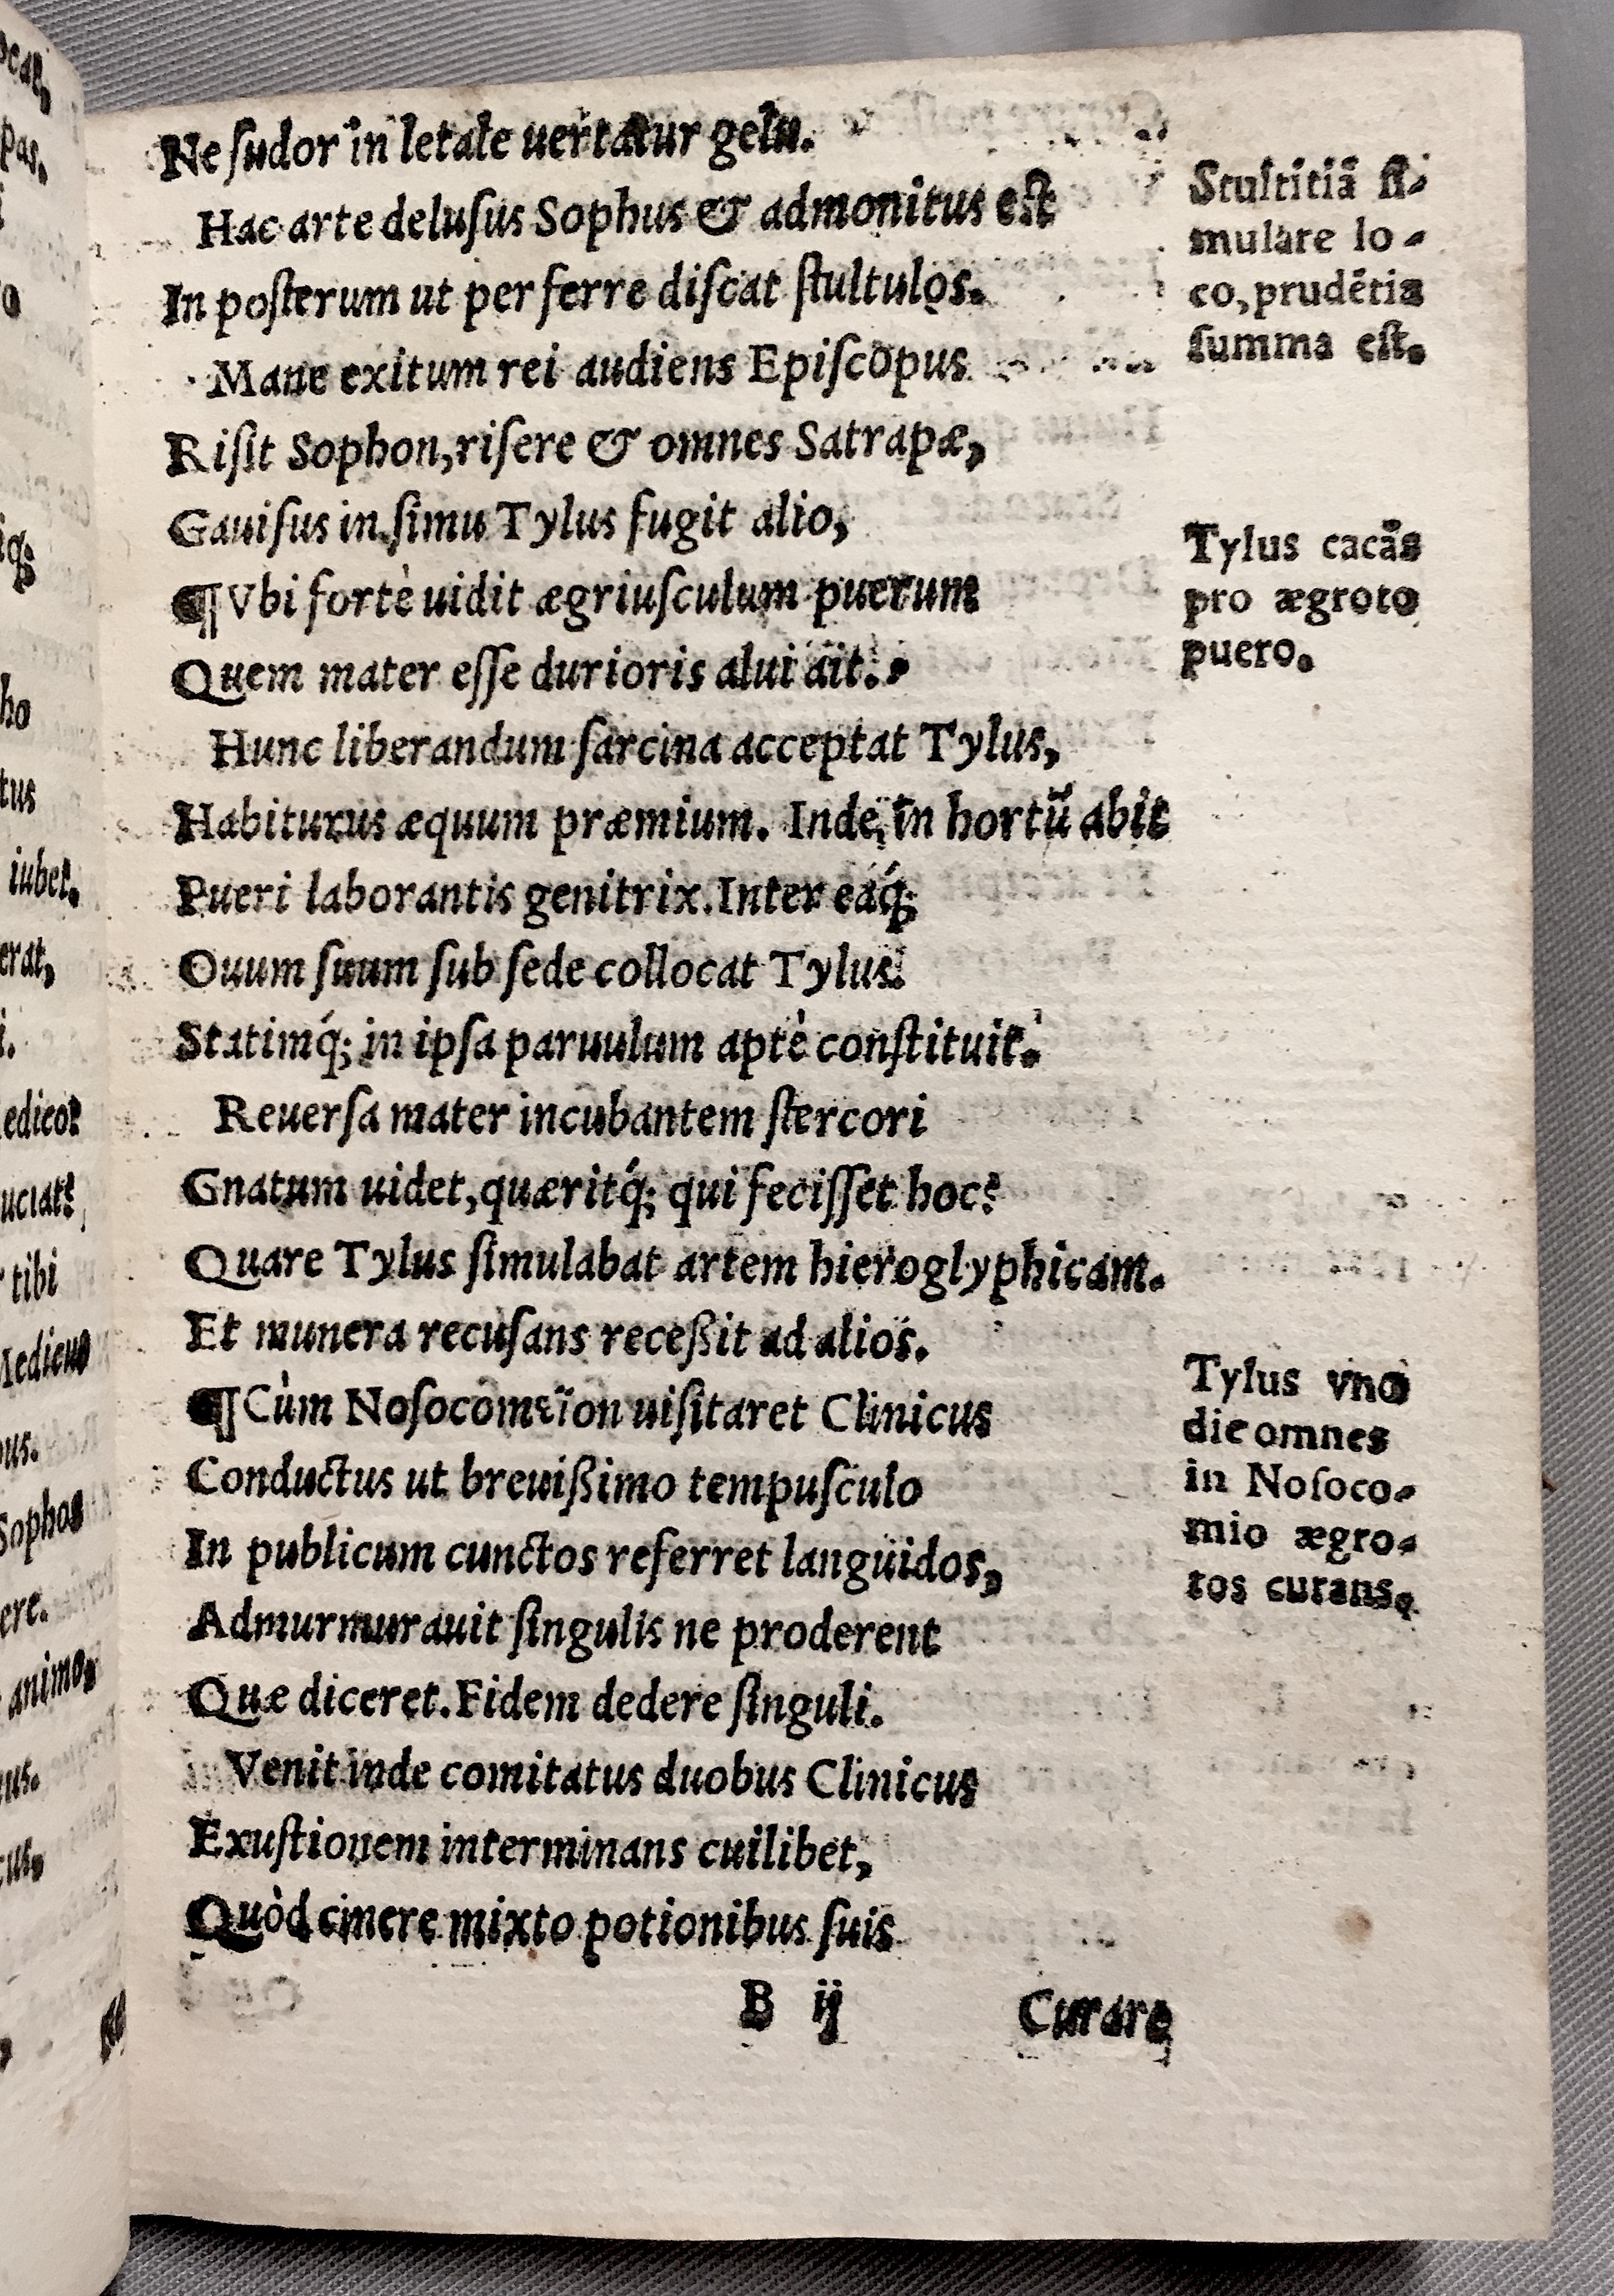 Ne ſudor in letale uertatur gelu.
Hac arte deluſus Sophus & admonitus eſt
In poſterum ut perferre diſcat ſtultulos.
Mane exitum rei audiens Epiſcopus
Riſit Sophon, riſere & omnes Satrapæ,
Gauiſus in ſimu Tylus fugit alio,
¶ Vbi fortè uidit ægriuſculum puerum
Quem mater eſſe durioris alui ait.
Hunc liberandum ſarcina acceptat Tylus,
Habiturus æquum præmium. Inde in hortũ abit
Pueri laborantis genitrix. Inter eaq́;
Ouum ſuum ſub ſede collocat Tylus.
Statimq́; in ipſa paruulum aptè conſtituit.
Reuerſa mater incubantem ſtercori
Gnatum uidet, quæritq́; qui feciſſet hoc?
Quare Tylus ſimulabat artem hieroglyphicam.
Et munera recuſans receßit ad alios.
¶ Cùm Noſocomεῖon uiſitaret Clinicus
Conductus ut breuißimo tempuſculo
In publicum cunctos referret languidos,
Admurmurauit ſingulis ne proderent
Quæ diceret. Fidem dedere ſinguli.
Venit inde comitatus duobus Clinicus
Exuſtionem interminans cuilibet,
Quòd cinere mixto potionibus ſuis
B ij
Curare
Stultitiã ſi-
mulare lo-
co, prudẽtia
ſumma eſt.
Tylus cacãs
pro ægroto
puero.
Tylus vno
die omnes
in Noſoco-
mio ægro-
tos curans.
iubet.
erat,
tibi
Sophos
ere.
animo.